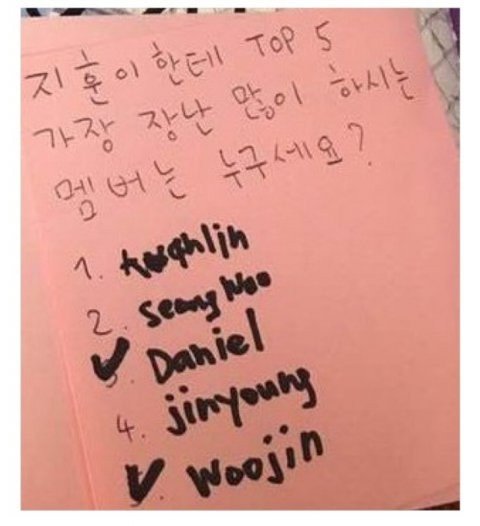 지훈이한테 TOP 5
가장 장난 많이 하시는
멤버는 누구세요?
1. kuanlin
2. seongwoo
3. Daniel
4. jinyoung
5. woojin